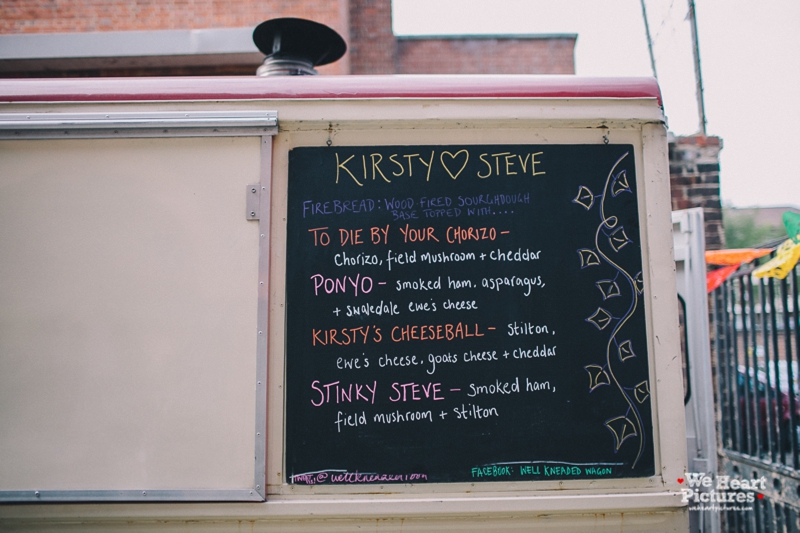 KIRSTY ♡ STEVE
FIREBREAD: WOOD-FIRED SOURGHDOUGH
BASE TOPPED WITH....
TO DIE BY YOUR CHORIZO -
Chorizo, field mushroom + cheddar
PONYO - smoked ham, asparagus,
+ swaledale ewe's cheese
KIRSTY'S CHEESEBALL - Stilton,
ewe's cheese, goats cheese + cheddar
STINKY STEVE - smoked ham,
field mushroom + stilton
FACEBOOK: WELL KNEADED WAGON
We Heart
Pictures
weheartpictures.com